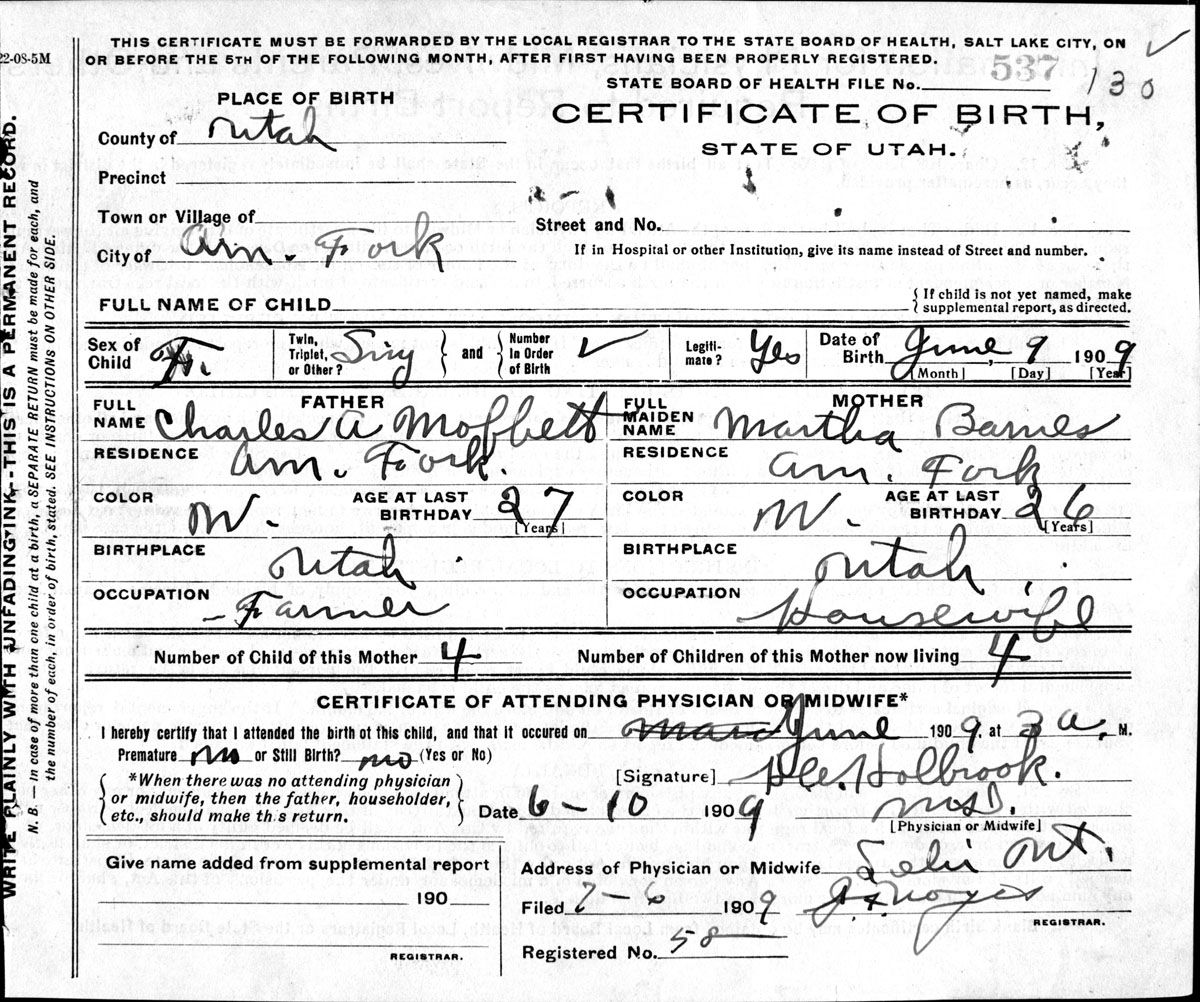 22-08-5M
THIS CERTIFICATE MUST BE FORWARDED BY THE LOCAL REGISTRAR TO THE STATE BOARD OF HEALTH, SALT LAKE CITY, ON
OR BEFORE THE 5TH OF THE FOLLOWING MONTH, AFTER FIRST HAVING BEEN PROPERLY REGISTERED.
STATE BOARD OF HEALTH FILE No. 537
130
PLACE OF BIRTH
CERTIFICATE OF BIRTH,
STATE OF UTAH.
County of Utah
Precinct
Town or Village of
Street and No.
City of Am. Fork
If in Hospital or other Institution, give its name instead of Street and number.
FULL NAME OF CHILD
{ If child is not yet named, make
supplemental report, as directed.
Sex of Child F. Twin, Triplet, or Other? Sing } and { Number In Order of Birth ✓ Legiti-mate? Yes Date of Birth June, 9 1909
[Month] [Day] [Year]
FATHER
FULL NAME Charles A Moffett
RESIDENCE Am. Fork.
COLOR W. AGE AT LAST BIRTHDAY 27 [Years]
BIRTHPLACE Utah
OCCUPATION Farmer
MOTHER
FULL MAIDEN NAME Martha Barnes
RESIDENCE Am. Fork
COLOR W. AGE AT LAST BIRTHDAY 26 [Years]
BIRTHPLACE Utah
OCCUPATION Housewife
Number of Child of this Mother 4 Number of Children of this Mother now living 4
CERTIFICATE OF ATTENDING PHYSICIAN OR MIDWIFE*
I hereby certify that I attended the birth of this child, and that it occured on June 1909, at 3 a, M.
Premature no or Still Birth? no (Yes or No)
{ *When there was no attending physician
or midwife, then the father, householder,
etc., should make this return. }
[Signature] Holbrook.
Date 6-10 1909 M.D.
[Physician or Midwife]
Give name added from supplemental report
190
REGISTRAR.
Address of Physician or Midwife Lehi Ut.
Filed 7-6 1909 Noyes
REGISTRAR.
Registered No. 58
WRITE PLAINLY WITH UNFADING INK--THIS IS A PERMANENT RECORD.
N. B.—In case of more than one child at a birth, a SEPARATE RETURN must be made for each, and
the number of each, in order of birth, stated. SEE INSTRUCTIONS ON OTHER SIDE.